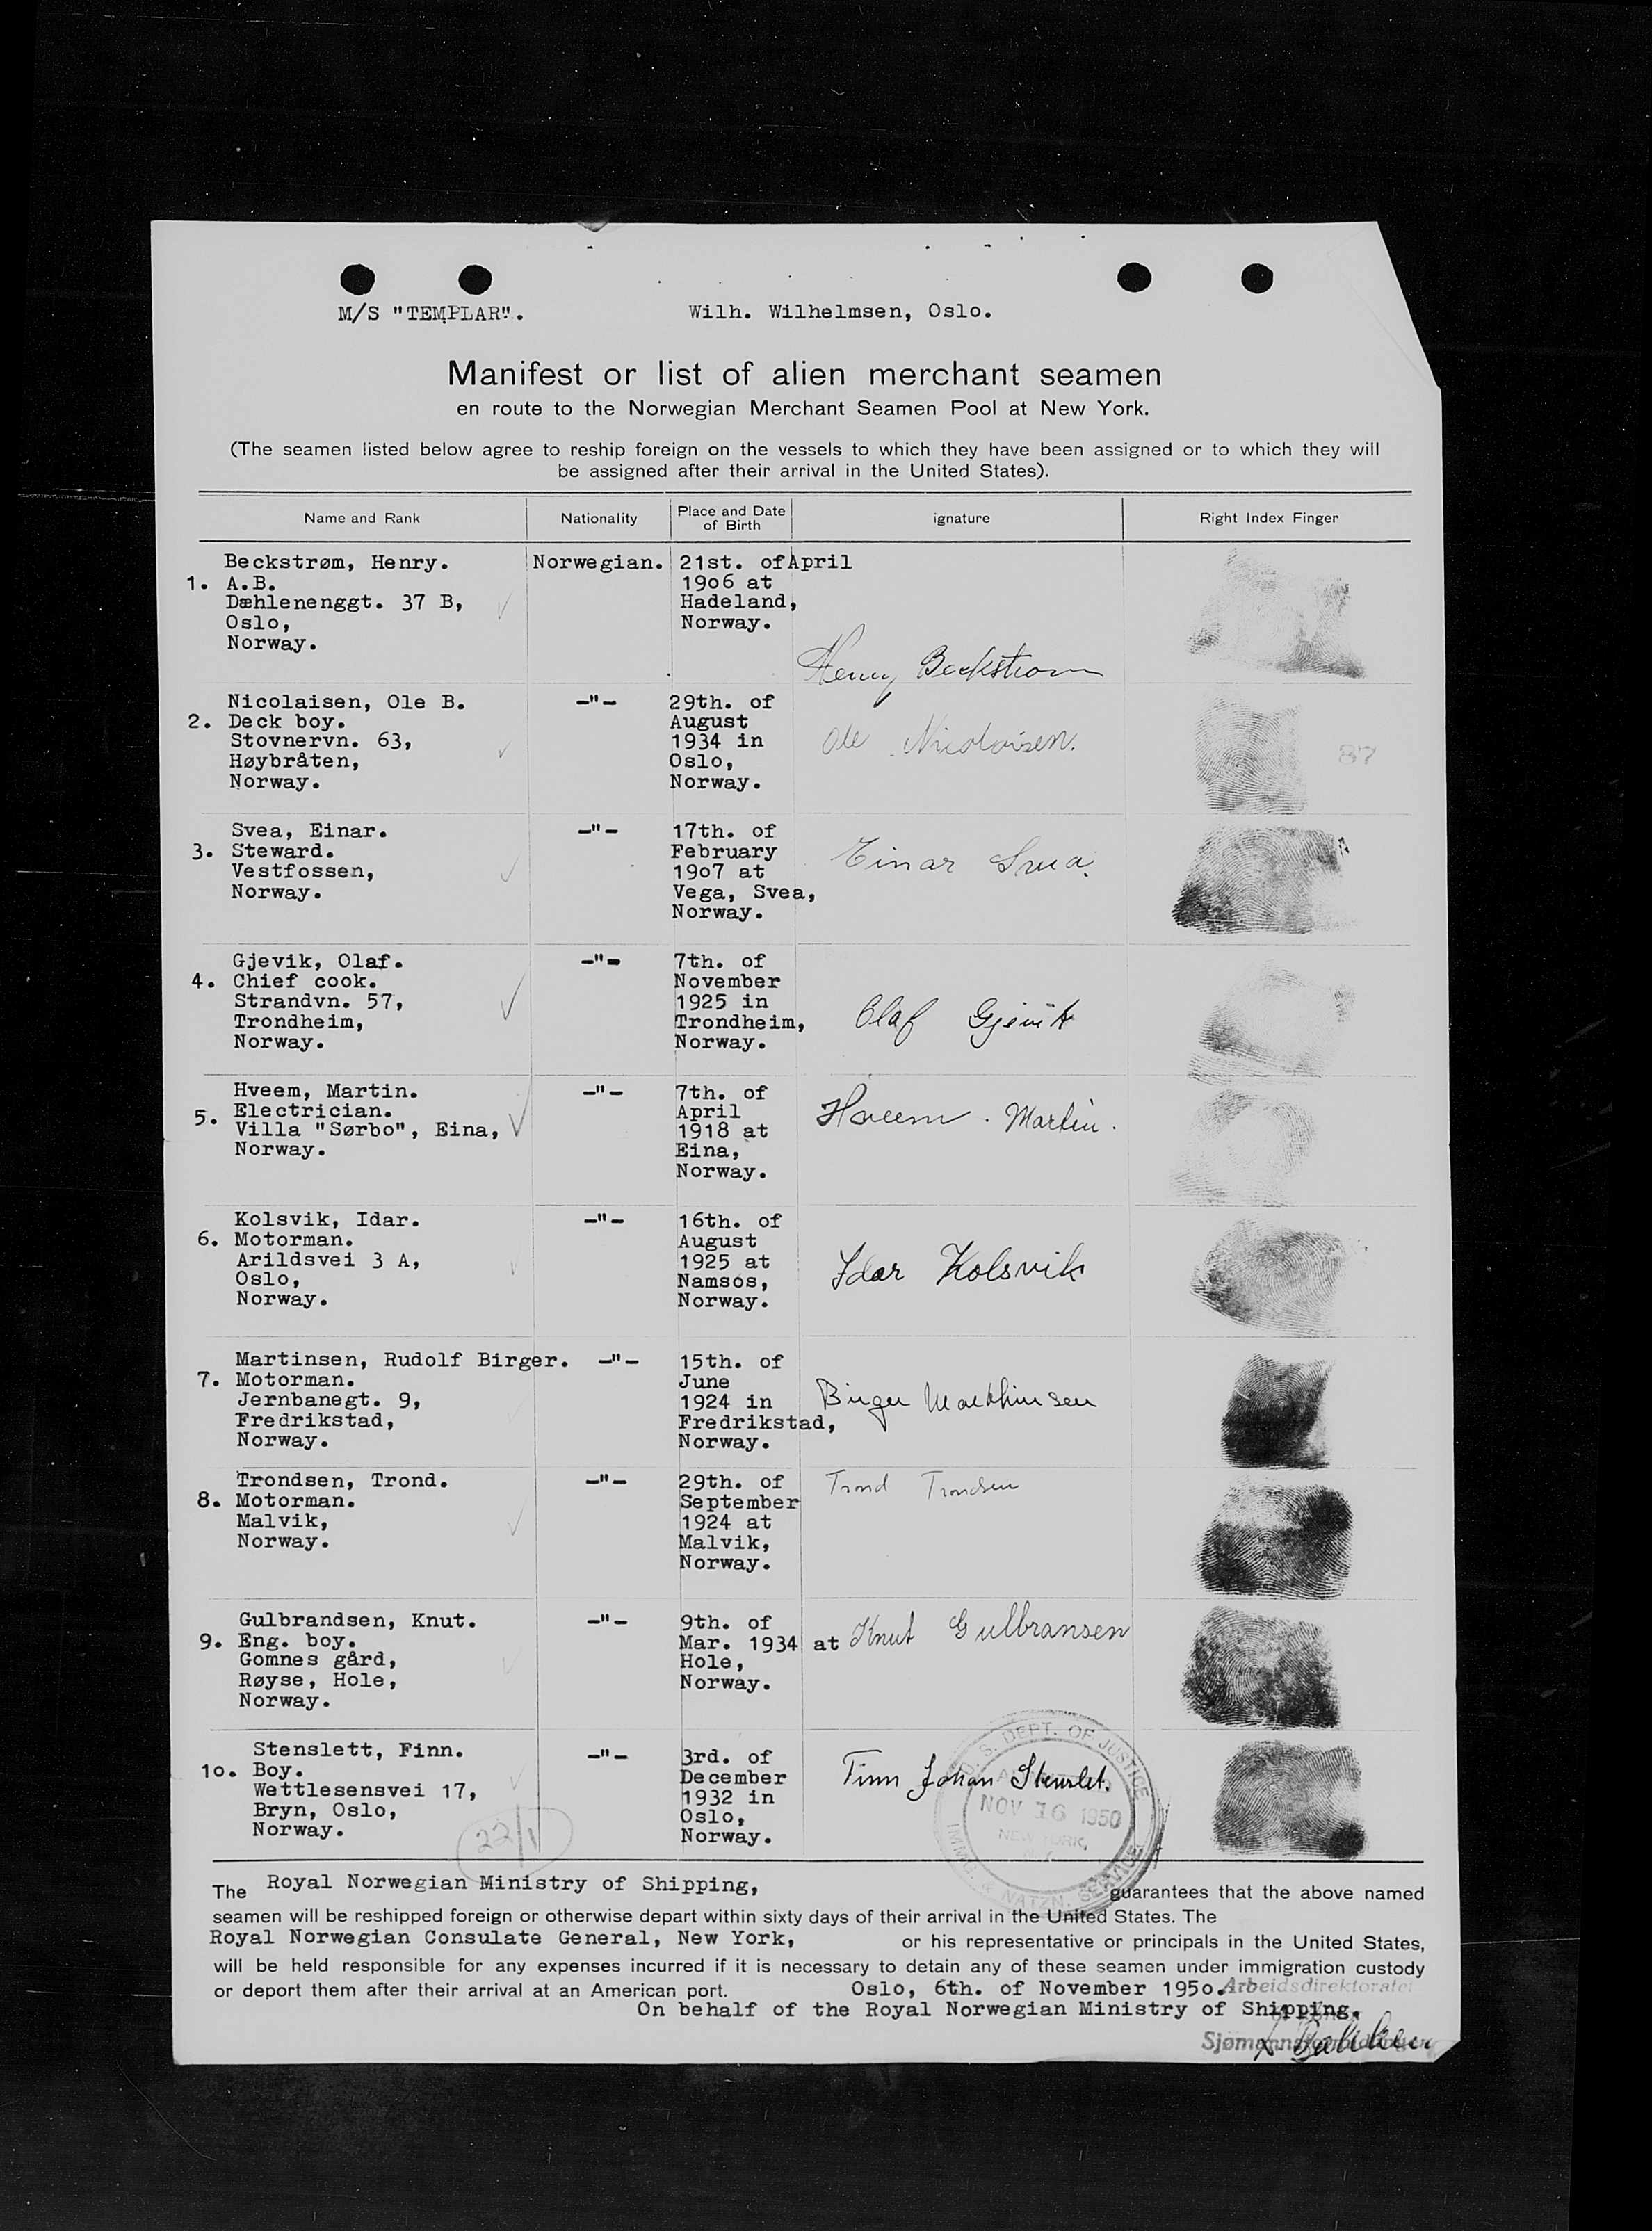 M/S "TEMPLAR". Wilh. Wilhelmsen, Oslo.
Manifest or list of alien merchant seamen
en route to the Norwegian Merchant Seamen Pool at New York.
(The seamen listed below agree to reship foreign on the vessels to which they have been assigned or to which they will
be assigned after their arrival in the United States).
Name and Rank Nationality Place and Date of Birth ignature Right Index Finger
Beckstrøm, Henry. Norwegian. 21st. of April
1. A.B. 19o6 at
Dæhlenenggt. 37 B, Hadeland,
Oslo, Norway.
Norway.
Henry Beckstrom
Nicolaisen, Ole B. -"- 29th. of
2. Deck boy. August
Stovnervn. 63, 1934 in Ole Nicolaisen.
Høybråten, Oslo, 87
Norway. Norway.
Svea, Einar. -"- 17th. of
3. Steward. February Einar Svea.
Vestfossen, 19o7 at
Norway. Vega, Svea,
Norway.
Gjevik, Olaf. -"- 7th. of
4. Chief cook. November
Strandvn. 57, 1925 in
Trondheim, Trondheim, Olaf Gjevik
Norway. Norway.
Hveem, Martin. -"- 7th. of
5. Electrician. April Hveem. Martin.
Villa "Sørbo", Eina, 1918 at
Norway. Eina,
Norway.
Kolsvik, Idar. -"- 16th. of
6. Motorman. August
Arildsvei 3 A, 1925 at Idar Kolsvik
Oslo, Namsos,
Norway. Norway.
Martinsen, Rudolf Birger. -"- 15th. of
7. Motorman. June
Jernbanegt. 9, 1924 in Birger Marthinsen
Fredrikstad, Fredrikstad,
Norway. Norway.
Trondsen, Trond. -"- 29th. of Trond Trondsen
8. Motorman. September
Malvik, 1924 at
Norway. Malvik,
Norway.
Gulbrandsen, Knut. -"- 9th. of Knut Gulbransen
9. Eng. boy. Mar. 1934 at
Gomnes gård, Hole,
Røyse, Hole, Norway.
Norway.
Stenslett, Finn. -"- 3rd. of
1o. Boy. December Finn Johan Stenslet.
Wettlesensvei 17, 1932 in
Bryn, Oslo, Oslo,
Norway. Norway.
22/1
U. S. DEPT. OF JUSTICE
ADMITTED
NOV 16 1950
NEW YORK,
IMMI. & NATZN. SERVICE
The Royal Norwegian Ministry of Shipping, guarantees that the above named
seamen will be reshipped foreign or otherwise depart within sixty days of their arrival in the United States. The
Royal Norwegian Consulate General, New York, or his representative or principals in the United States,
will be held responsible for any expenses incurred if it is necessary to detain any of these seamen under immigration custody
or deport them after their arrival at an American port. Oslo, 6th. of November 195o. Arbeidsdirektoratet
On behalf of the Royal Norwegian Ministry of Shipping.